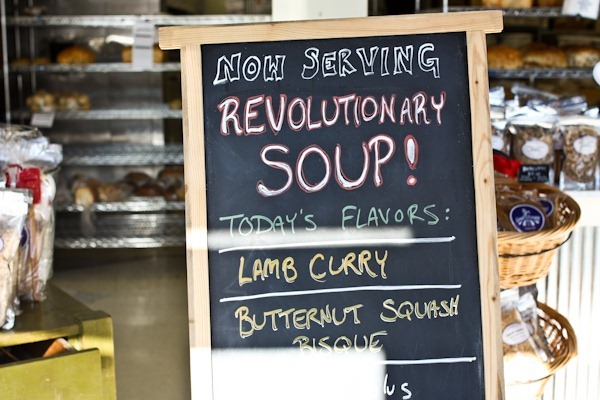 NOW SERVING
REVOLUTIONARY
SOUP!
TODAY'S FLAVORS:
LAMB CURRY
BUTTERNUT SQUASH
BISQUE